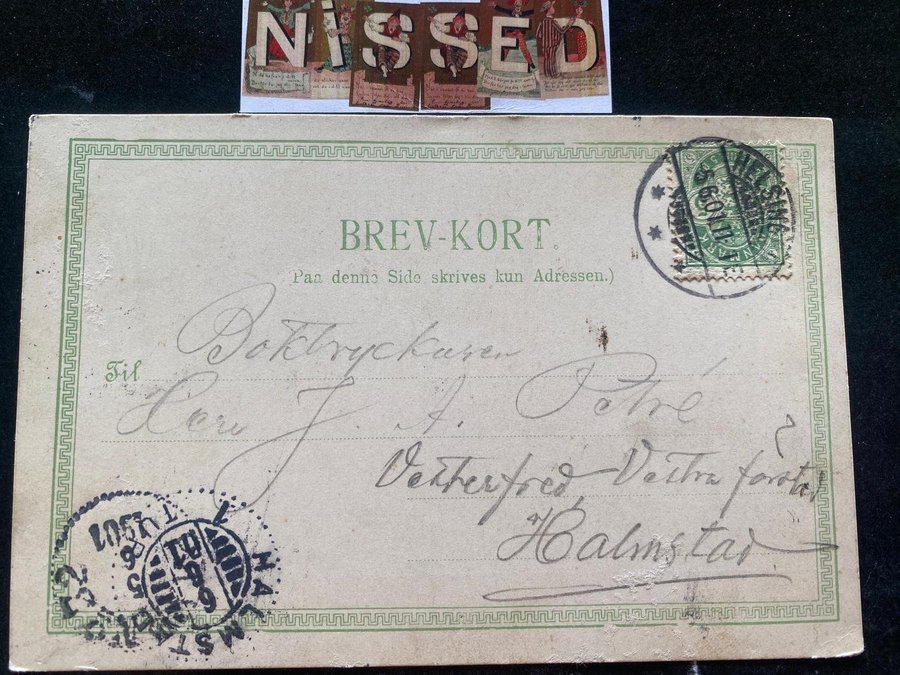 NISSED
BREV-KORT.
(Paa denne Side skrives kun Adressen.)
HELSING
5.6.01
Boktryckaren
Til
Herr J. A. Petré
Vesterfred, Vestra förstad
Halmstad
HALMSTAD
1901